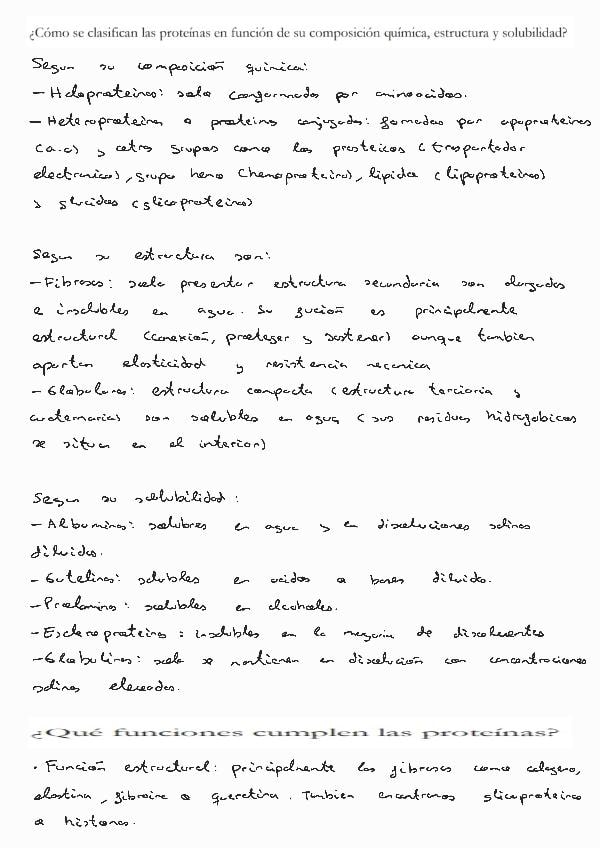 ¿Cómo se clasifican las proteínas en función de su composición química, estructura y solubilidad?
Segun su composición química:
- Holoproteinas: solo conformadas por aminoacidos.
- Heteroproteinas o proteins conjugadas: formadas por apoproteines
(a.a) y otros grupos como los prosteticos (trasportador
electronico), grupo hemo (hemoproteina), lipidos (lipoproteinas)
y glucidos (glicoproteinas)
Segun su estructura son:
- Fibrosas: suele presentar estructura secundaria son alargadas
e insolubles en agua. Su fución es principalmente
estructural (conexión, proteger y sostener) aunque tambien
aportan elasticidad y resistencia mecanica
- Globulares: estructura compacta (estructura terciaria y
cuaternaria) son solubles en agua (sus residuos hidrofobicos
se situan en el interior)
Segun su solubilidad:
- Albuminas: solubres en agua y en disoluciones salinas
diluidas.
- Gutelinas: solubles en acidos o bases diluido.
- Prolamina: solubles en alcoholes.
- Escleroproteinas: insolubles en la mayoria de disolventes
- Globulinas: solo se mantienen en disolución con concentraciones
salinas elevadas.
¿Qué funciones cumplen las proteínas?
· Función estructural: principalmente las fibrosas como colageno,
elastina, fibroina o queretina. Tambien encontramos glicoproteinas
o histonas.